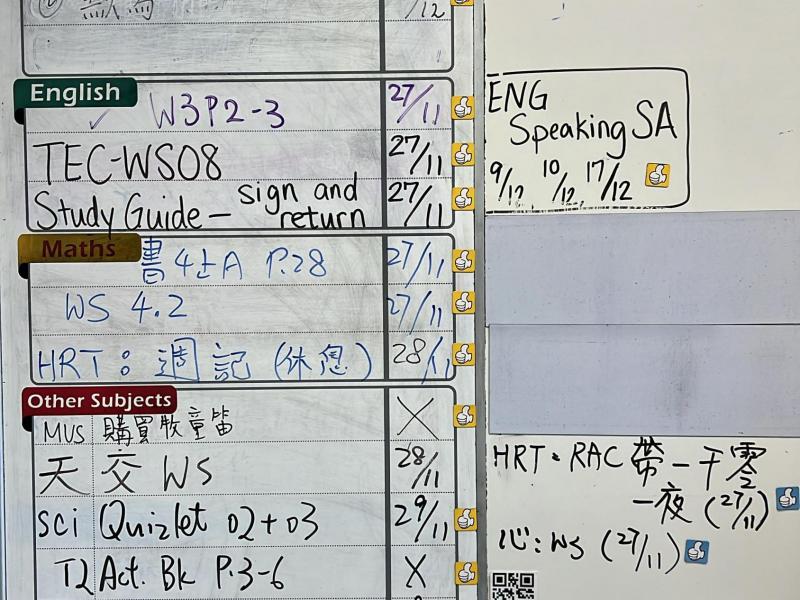 12
English
W3P2-3 27/11
TEC-WS08 27/11
Study Guide — sign and return 27/11
ENG
Speaking SA
9/12 10/12 17/12
Maths
書4上A P.28 27/11
WS 4.2 27/11
HRT: 週記 (休息) 28/11
Other Subjects
MUS 購買牧童笛 X
天 交 WS 28/11
sci Quizlet 02+03 29/11
T2 Act. Bk P.3-6 X
HRT. RAC 帶一千零
一夜 (27/11)
心: WS (27/11)